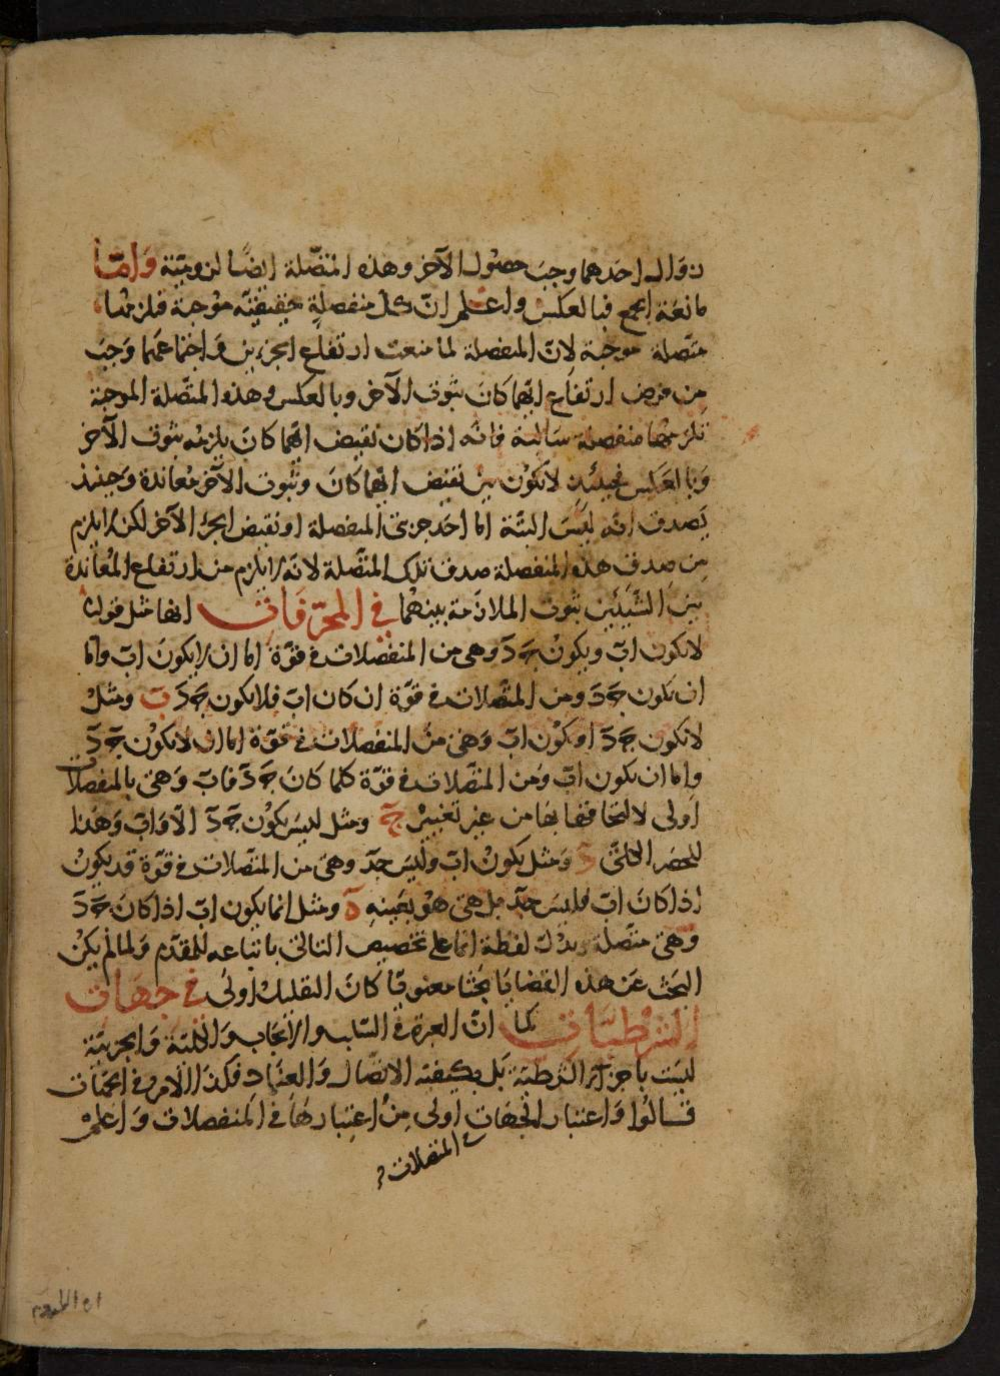 زوال احدهما وجب حصول الآخر وهذه المتصلة ايضًا لزومية وَامّا
مانعة الجمع فبالعكس واعلم انّ كل منفصلةٍ حقيقيّه موجبة فلزمها
متصلة موجبة لانّ المنفصلة لما منعت ارتفاع الجزءين وَاجتماعهما وَجبَ
مِن فرض ارتفاع ايّهما كانَ ثبوت الآخر وبالعكس وهذه المتّصلة الموجبة
تلزمها منفصلة سَالبة فانّه اذا كان نقيض ايّهما كانَ يلزمه ثبوت الآخر
وَبالعكس فحينئذٍ لا يكوْن بين نقيض ايّهما كانَ وثبوت الآخر مُعاندة وحينئذ
يَصدق انّه ليسَ البتّة اما احَد جزءي المنفصلة او نقيض الجزء الآخر لكن لا يلزم
مِن صدق هذه المنفصلة صدق تلك المتّصلة لانّه لا يلزم من ارتفاع المُعاندة
بين الشيئين ثبوت الملازمة بينهمُا في المحرّفات انها مثل قولنا
لا يكون اب ويكوْن جَ دَ وهى من المنفصلات في قوّة اما ان لا يكونَ اب واما
ان يكون جَ دَ ومن المتّصلات في قوّة ان كان اب فلا يكون جَ دَ بَ ومثلْ
لا يكون جَ دَ او يكوْن اب وَهى منْ المنفصلات في قوّة اما ان لا يكوْن جَ دَ
واما ان يكون اب وَمن المتّصلات في قوّة كلما كانَ جَ دَ فاب وَهى بالمنفصلات
اَولى لالتحاقها بها من غير تغييرْ جَ ومثل ليسَ يكوْن جَ دَ الّا وَاب وَهَذا
للحَصر الكلىّ دَ وَمثل يكونْ اب وليسَ جد وهى من المتّصلات في قوّة قد يكونُ
اذا كانَ اب فليسَ جد بل هى هُوَ بعَينهِ هَ ومثل انما يكون اب اذا كانَ جَ دَ
وَهى متّصلة يدلّ لفظة انما على تخصيص التالى باتباعه للمقدّم وَلما لم يكنْ
البَحث عَن هذه القضايَا بحثا معنويّا كانَ التقليل اولىٰ في جهَات
الشرْطيّات كما انّ العبرة في السّلب والايجَاب وَالكليّة وَالجزئيّة
ليسَت باجزاء الشرطيّة بَل بكيفيّة الاتصَال وَالعِناد فكذا الامر في الجهَات
قالوُا وَاعتبار الجهَات اولى مِن اعتبارهَا في المنفصلات وَاعلمْ
في المتصلات
ان اللزوم